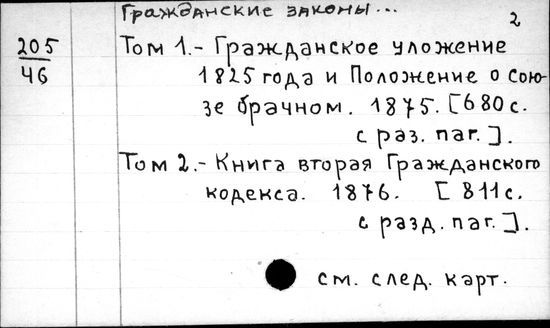 Гражданские законы...
2
205
46
Том 1.- Гражданское уложение
1825 года и Положение о сою-
зе брачном. 1875. [680 с.
с раз. паг.].
Том 2.- Книга вторая Гражданского
кодекса. 1876. [811 с.
с разд. паг.].
см. след. карт.